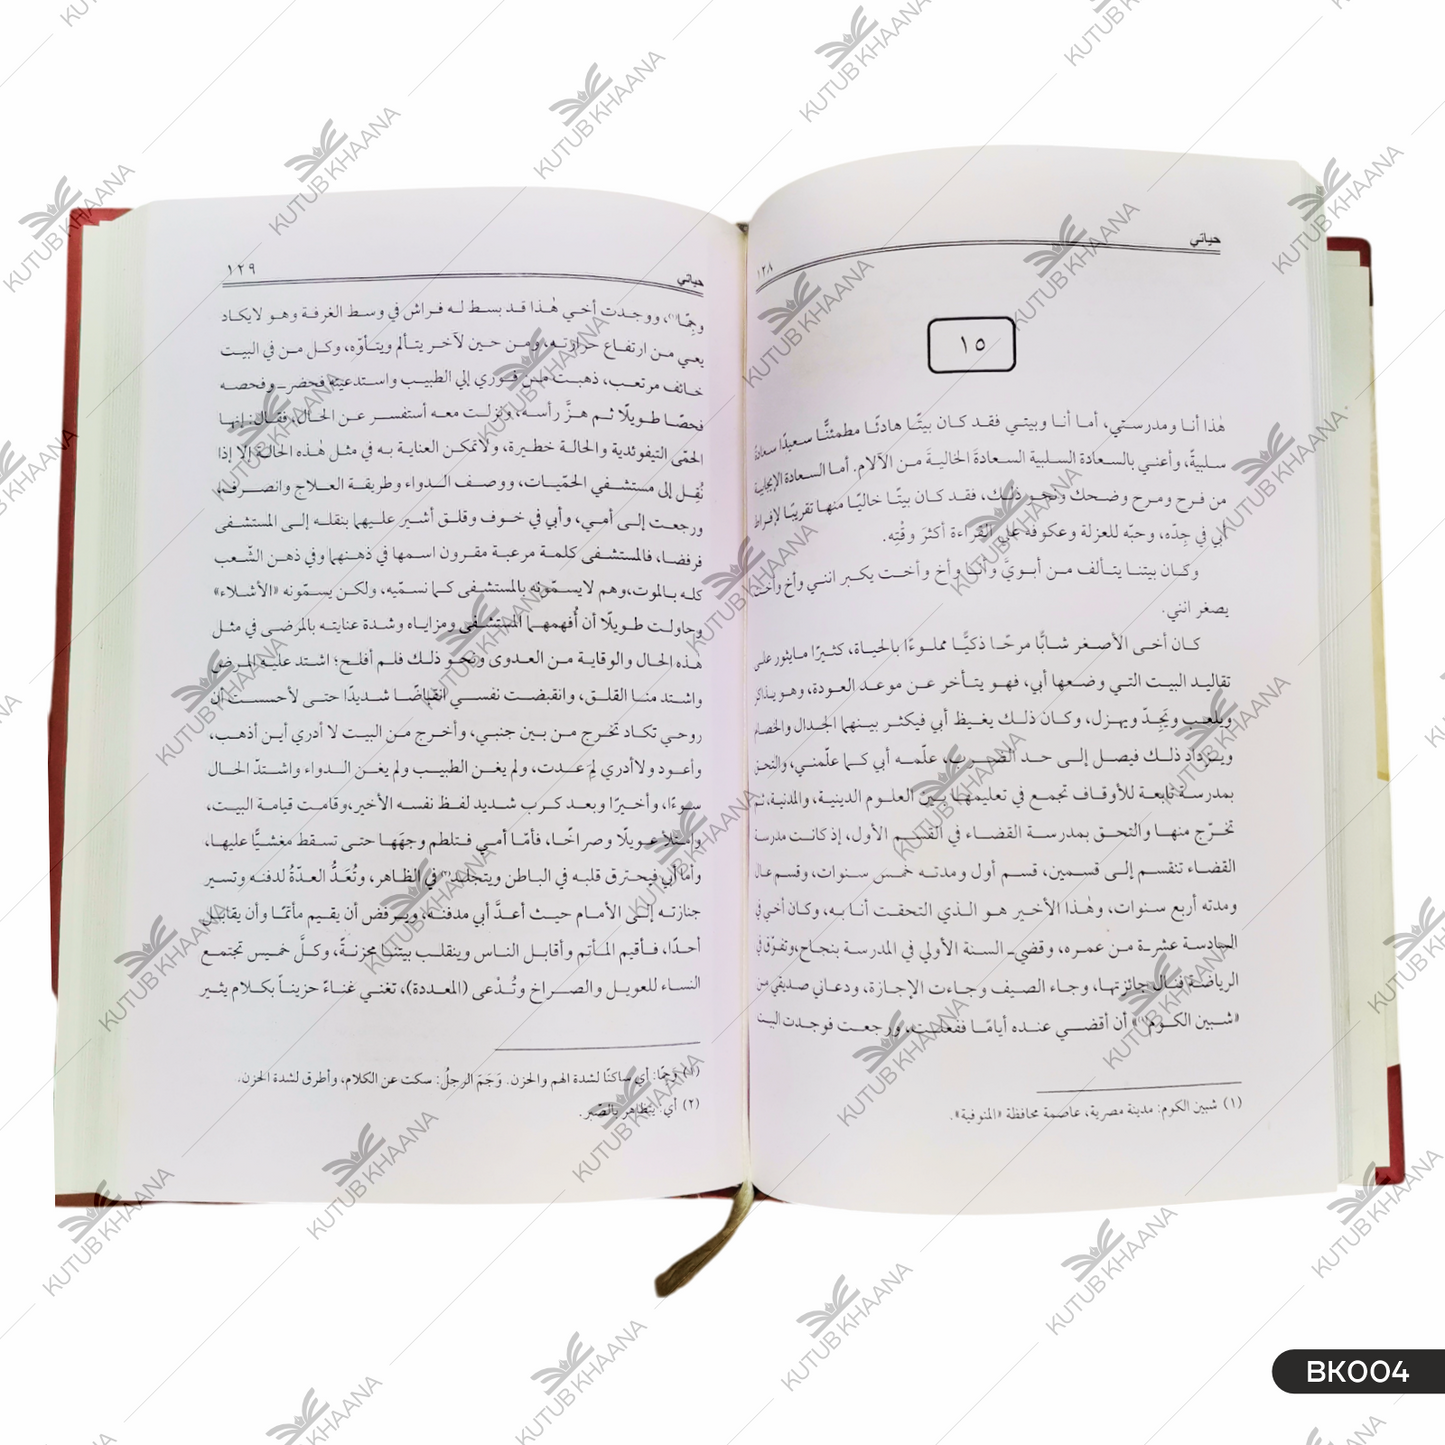 حياتي
١٢٨
١٥
هٰذا أنـا ومدرسـتي، أمـا أنـا وبيتـي فقـد كـان بيتًـا هادئًـا مطمئنًّـا سـعيدًا سـعادةً
سـلبيةً، وأعنـي بالسـعادة السـلبية السـعادةَ الخاليـةَ مـن الآلام. أمـا السـعادة الإيجابية
من فـرح ومـرح وضـحك ونحـو ذلـك، فقـد كـان بيتًـا خاليًـا منهـا تقريبًـا لإفـراط
أبي في جِدّه، وحبّه للعزلة وعكوفه على القراءة أكثرَ وقْتِه.
وكـان بيتنـا يتـألف مـن أبـويَّ وأنـا وأخ وأخـت يكـبر انني وأخ وأخت
يصغر انني.
كـان أخـى الأصـغر شـابًّا مرحًـا ذكيًّـا مملـوءًا بالحيـاة، كثـيرًا مـا يثور على
تقاليـد البيـت التـي وضـعها أبي، فهـو يتـأخر عـن موعـد العـودة، وهـو يذاكر
ويلعـب ويَجِـدّ ويهـزل، وكـان ذلـك يغـيظ أبي فيكثـر بيـنهما الجـدال والخصام
ويـزداد ذلـك فيصـل إلـى حـد الضـرب، علّمـه أبي كـما علّمنـي، والتحق
بمدرسـة تابعـة للأوقـاف تجمـع في تعليمهـا بـين العلـوم الدينيـة، والمدنيـة، ثم
تخـرّج منهـا والتحـق بمدرسـة القضـاء في القسـم الأول، إذ كانـت مدرسة
القضـاء تنقسـم إلـى قسـمين، قسـم أول ومدتـه خمـس سـنوات، وقسـم عـال
ومدتـه أربـع سـنوات، وهٰـذا الأخـير هـو الـذي التحقـت أنـا بـه، وكـان أخـي في
السادسة عشـرة مـن عمـره، وقضـى السـنة الأولـي في المدرسـة بنجـاح، وتفـوّق في
الرياضـة فنـال جائزتهـا، وجـاء الصـيف وجـاءت الإجـازة، ودعـاني صـديقي مـن
«شـبين الكـوم(١)» أن أقضـي عنـده أيامًـا ففعلـت، ورجعـت فوجـدت البيـت
(١) شبين الكوم: مدينة مصرية، عاصمة محافظة «المنوفية».
حياتي
١٢٩
وجِمًا(١)، ووجـدت أخـي هٰـذا قـد بسـط لـه فـراش في وسـط الغرفـة وهـو لايكـاد
يعـي مـن ارتفـاع حرارتـه، ومـن حـين لآخـر يتـألم ويتـأوّه، وكـل مـن في البيـت
خـائف مرتعـب، ذهبـت مـن فـوري إلي الطبيـب واسـتدعيته فحضـر وفحصـه
فحصًـا طـويلًا ثـم هـزَّ رأسـه، ونزلـت معـه أستفسـر عـن الحـال، فقـال: إنهـا
الحمّى التيفوئدية والحالـة خطـيرة، ولا تمكن العنايـة بـه في مثـل هٰـذه الحالـة إلا إذا
نُقِـل إلى مستشـفي الحمّيـات، ووصـف الـدواء وطريقـة العـلاج وانصـرف،
ورجعـت إلـى أمـي، وأبي في خـوف وقلـق أشـير عليهـما بنقلـه إلـى المستشـفى
فرفضـا، فالمستشـفى كلمـة مرعبـة مقـرون اسـمها في ذهـنهما وفي ذهـن الشّـعب
كلـه بـالموت،وهم لا يسـمّونه بالمستشـفى كـما نسـمّيه، ولكـن يسـمّونه «الأشـلاء»
وحاولـت طـويلًا أن أُفهمهـما المستشـفى ومزايـاه وشـدة عنايتـه بالمرضـى في مثـل
هٰـذه الحـال والوقايـة مـن العـدوى ونحـو ذلـك فلـم أفلـح؛ اشـتد عليـه المـرض
واشـتد منـا القلـق، وانقبضـت نفسـي انقباضًـا شـديدًا حتـى لأحسسـت أن
روحـي تكـاد تخـرج مـن بـين جنبـي، وأخـرج مـن البيـت لا أدري أيـن أذهـب،
وأعـود ولا أدري لِمَ عـدت، ولم يغـن الطبيـب ولم يغـن الـدواء واشـتدّ الحـال
سـوءًا، وأخـيرًا وبعـد كـرب شـديد لفـظ نفسـه الأخير،وقامـت قيامـة البيـت،
وامـتلأ عـويلًا وصراخًـا، فأمّـا أمـي فـتلطم وجهَهـا حتـى تسـقط مغشـيًّا عليهـا،
وأما أبي فيحـترق قلبـه في البـاطن ويتجلـد(٢) في الظـاهر، وتُعَـدُّ العـدّةُ لدفنـه وتسـير
جنازتـه إلـى الأمـام حيـث أعـدَّ أبي مدفنـه، ويـرفض أن يقـيم مأتمًـا وأن يقابـل
أحدًا، فـأقيم المـأتم وأقابـل النـاس وينقلـب بيتنـا محزنـةً، وكـلَّ خمـيس تجتمـع
النسـاء للعويـل والصـراخ وتُـدْعى (المعـددة)، تغنـي غنـاءً حزينـاً بكـلام يثـير
(١) وَجِمًا: أي ساكتًا لشدة الهم والحزن. وَجَمَ الرجلُ: سكت عن الكلام، وأطرق لشدة الحزن.
(٢) أي: يتظاهر بالصّبر.
KUTUB KHAANA
BK004